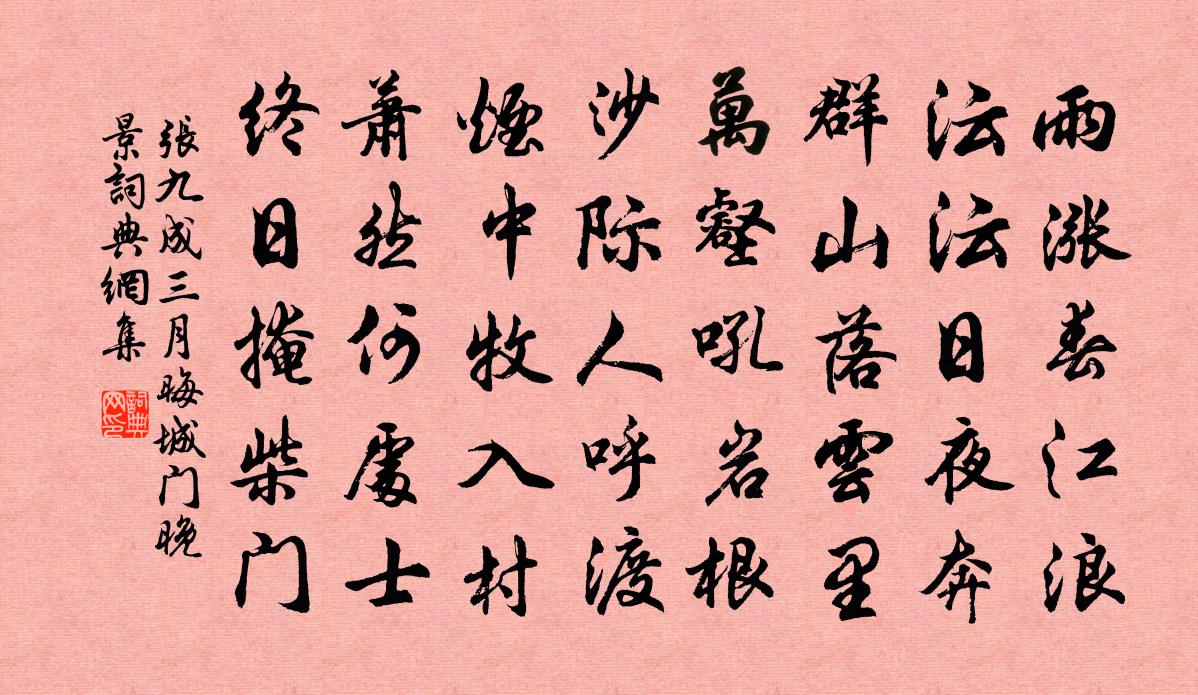 雨漲春江浪
沄沄日夜奔
群山落雲里
萬壑吼岩根
沙际人呼渡
煙中牧入村
蕭然何處士
终日掩柴门
張九成三月晦城门晚
景詞典網集
詞典网印